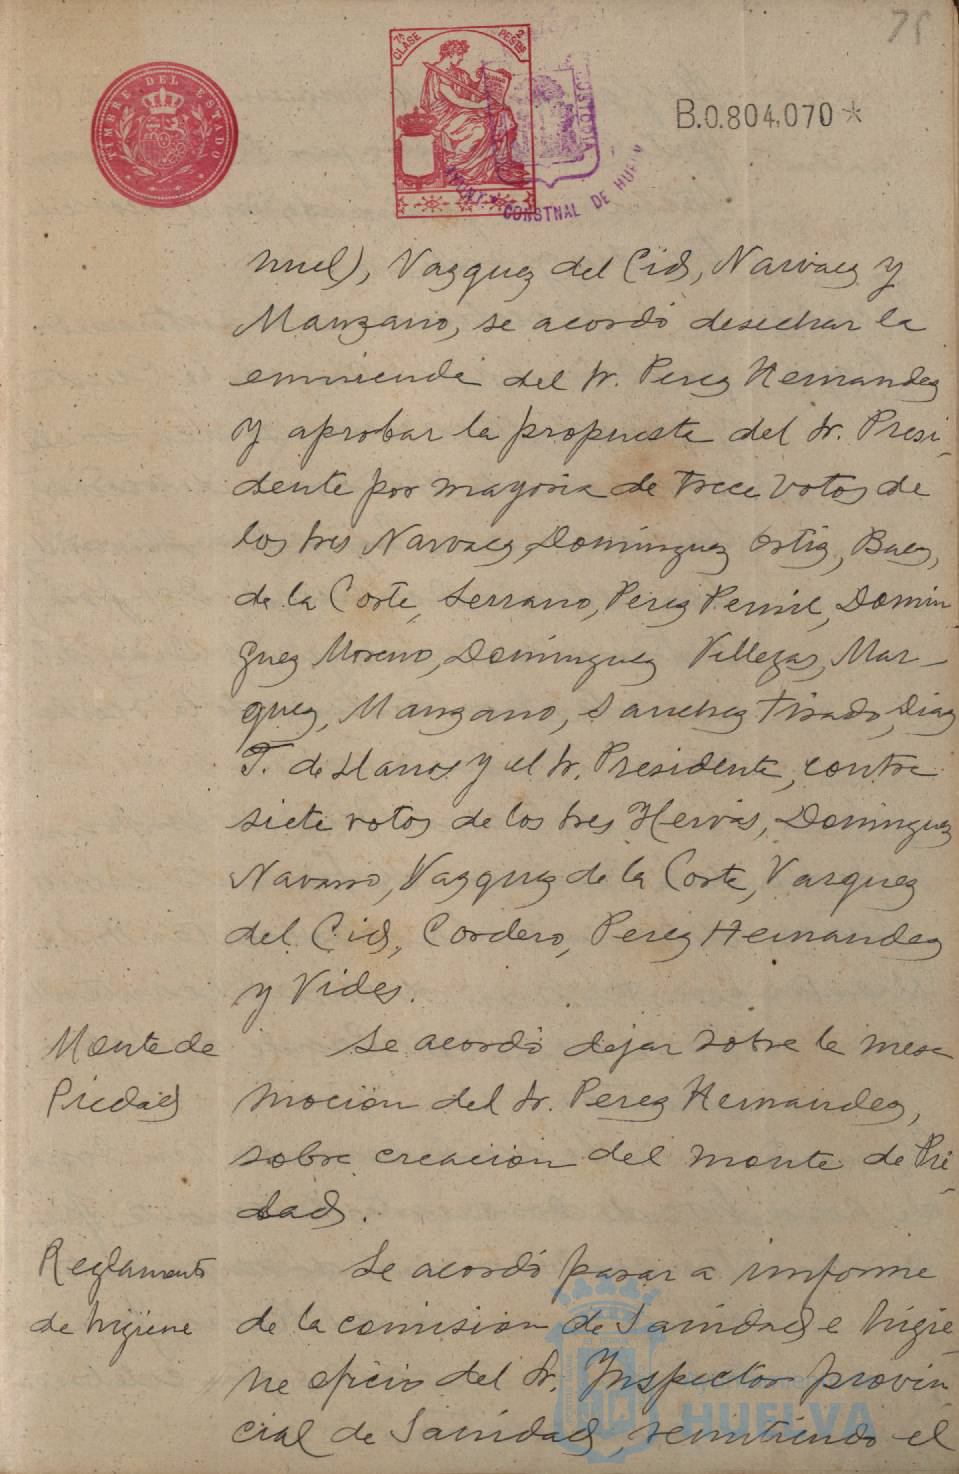 75
TIMBRE DEL ESTADO
7ª CLASE 2 PESTAS
CUSTODIA
AYUNTº CONSTNAL DE HUELVA
B.0.804,070*
nuel), Vazquez del Cid, Narvaez y
Manzano, se acordó desechar la
enmienda del Sr. Perez Hernandez
y aprobar la propuesta del Sr. Presi-
dente por mayoria de trece votos de
los Sres Narvaez, Dominguez Ortiz, Baez,
de la Corte, Serrano, Perez Pernil, Domin
guez Moreno, Dominguez Villegas, Mar-
quez, Manzano, Sanchez Tirado, Diaz
F. de Llanos y el Sr. Presidente, contra
siete votos de los Sres Hervás, Dominguez
Navarro, Vazquez de la Corte, Vazquez
del Cid, Cordero, Perez Hernandez
y Vides.
Monte de
Piedad
Se acordó dejar sobre la mesa
moción del Sr. Perez Hernandez,
sobre creacion del monte de Pie-
dad.
Reglamento
de higiene
Se acordó pasar a informe
de la comision de Sanidad e higie-
ne oficio del Sr. Inspector provin
cial de Sanidad, remitiendo el
HUELVA